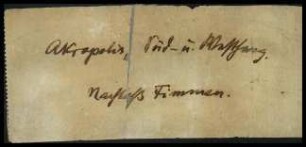 Akropolis, Süd- u. Westhang.
Nachlaß Zimmer.